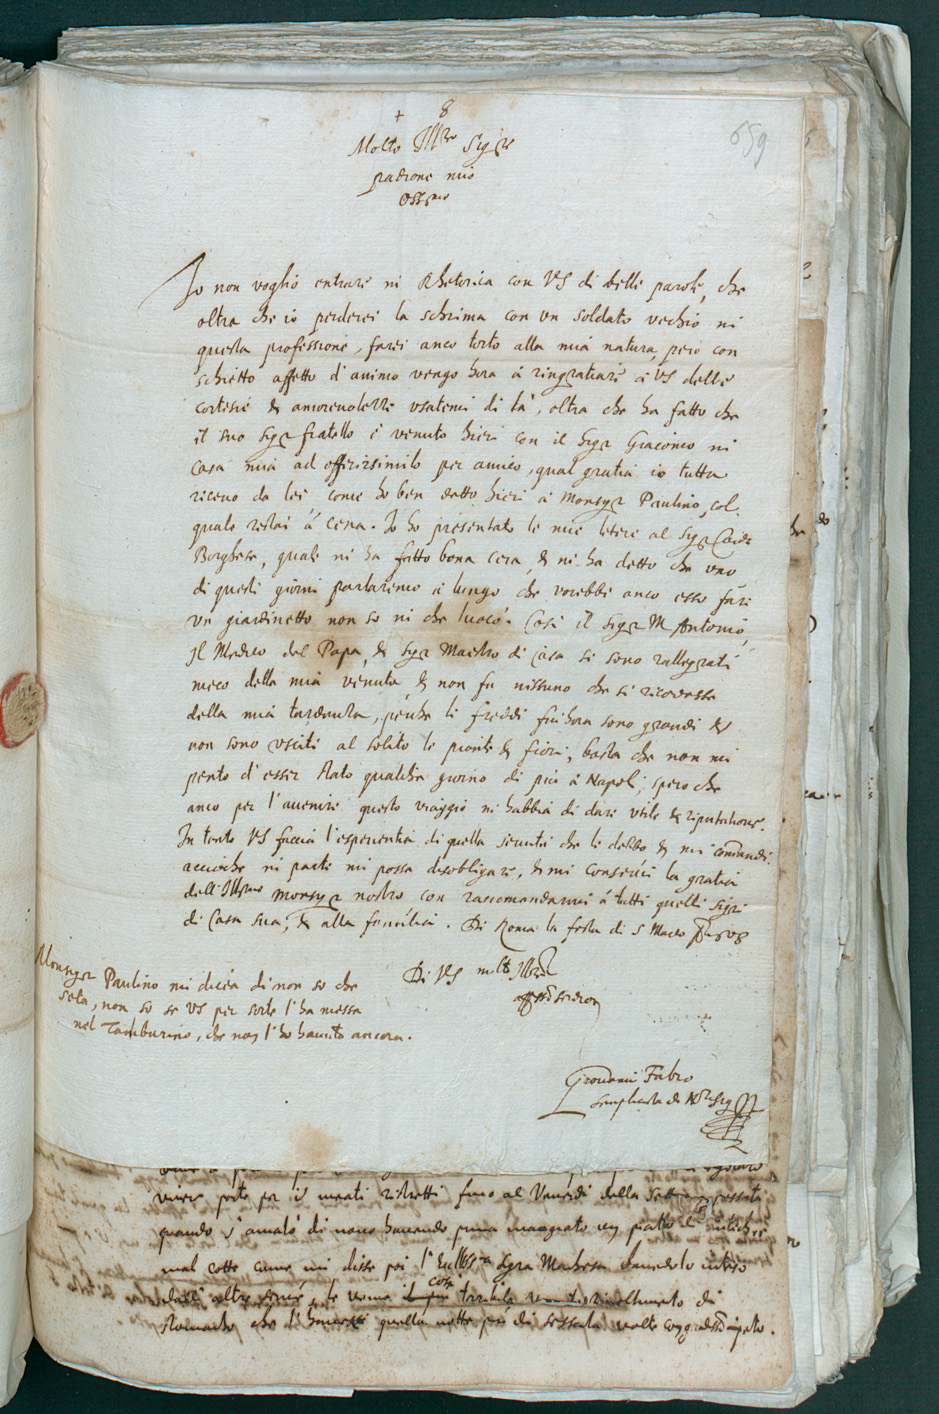 + 8
659
Molto Ill.re Sig.r
padrone mio
oss.mo
Io non voglio entrare ni Rhetorica con VS di belle parole, che
oltra che io perderei la schrima con un soldato vechio ni
questa professione, farei anco torto alla mia natura, però con
schietto affetto d'animo vengo hora à ringratiare à VS delle
cortesie & amorevolezze usatemi di là, oltra che ha fatto che
il suo sigr fratello è venuto hieri con il sigr Giacomo ni
casa mia ad offerirsimilo per amico, qual gratia io tutta
ricevo da lei come ho ben detto hieri à Monsigr Paulino, col
quale restai à cena. Io ho presentato le mie letere al Sigr Card.
Borghese, quale mi ha fatto bona cera, & mi ha detto che uno
di questi giorni parlaremo à lungo che vorebbe anco esso fare
un giardinetto non so ni che luoco. Così il sigr M. Antonio,
Il Medico del Papa, & sigr Maestro di Casa si sono rallegrati
meco della mia venuta, & non fu nissuno che si ricordasse
della mia tardanza, perche li freddi finhora sono grandi &
non sono usciti al solito le piante & fiori, basta che non mi
pento d'esser stato qualche giorno di più à Napoli, spero che
anco per l'avenire questo viaggio mi habbia di dare utile & riputatione.
In tanto VS faccia l'esperientia di quella servitù che li debbo & mi comandi
acciochè ni parte mi possa disobligare, & mi conservi la gratia
dell'Ill.mo Monsigr nostro con raccomandarmi à tutti quelli sigri
di Casa sua, & alla famiglia. Di Roma la festa di S Marco 1608
Di VS molto Ill.re
aff.mo servitor
Monsigr Paulino mi dicea di non so che
seta, non so se VS per sorte l'ha messa
nel Tamburino, che non l'ho havuto ancora.
Giovanni Fabro
semplicista di N.ro Sig.re
quando s'amalò di novo havendo prima mangiato un piatto di
mal cotte come mi disse poi l'
stomacho che l'
quella notte più di sessanta volte